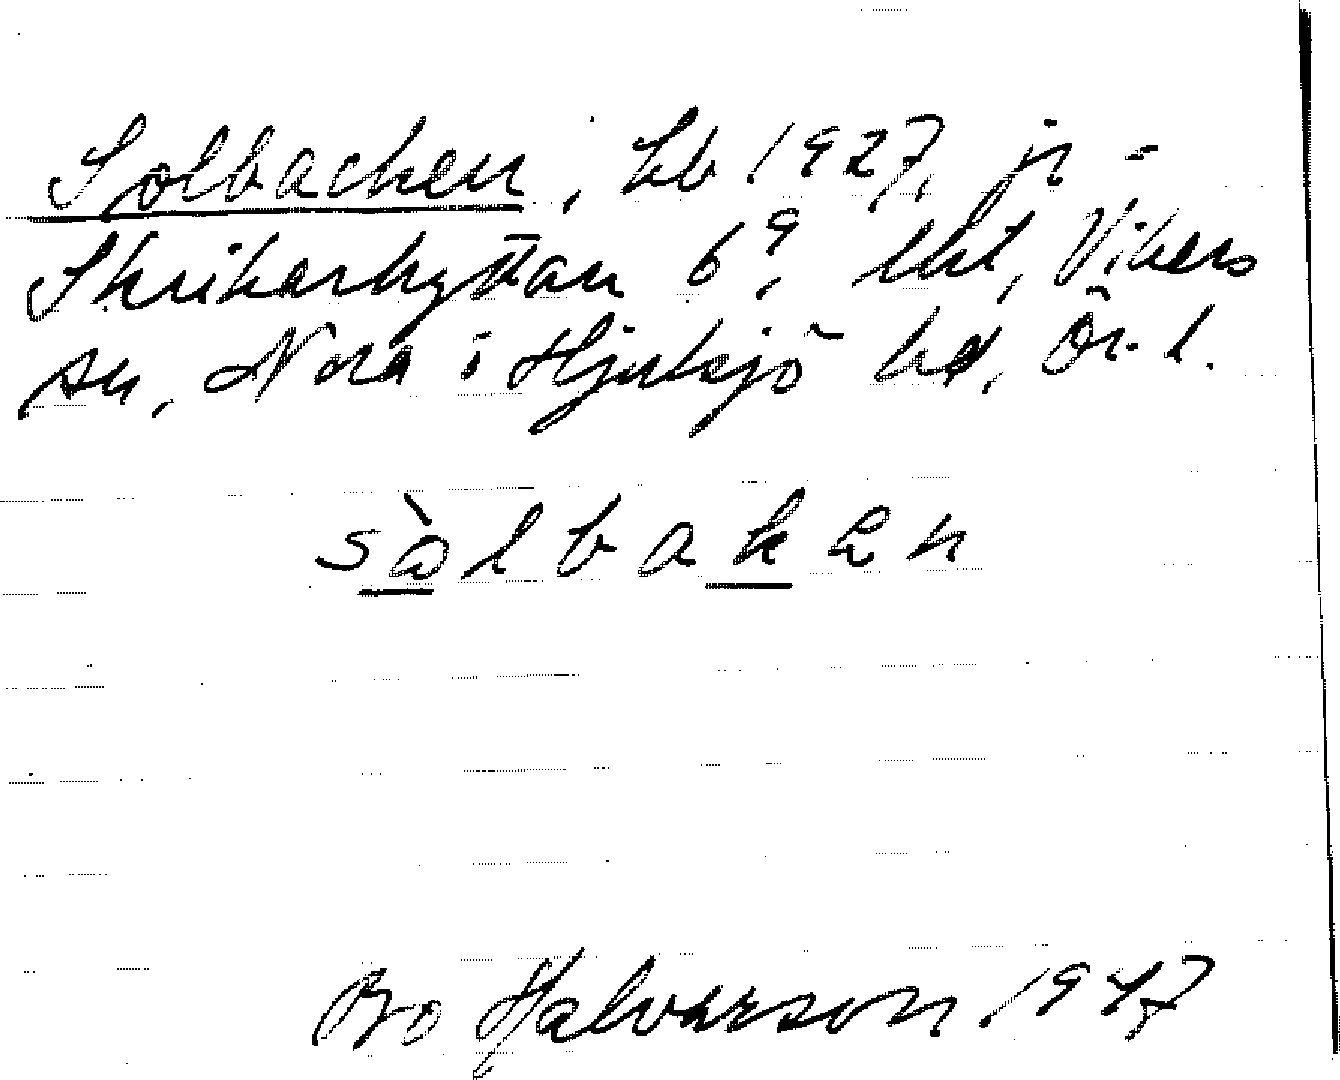 Solbacken, Lb 1927, jr =
Skrikarhyttan 6⁹, lht, Vikers
sn, Nora i Hjulsjö hd, Ör. l.
sòlbakɛn
Bo Halvarson 1947